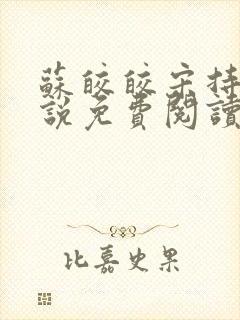 蘇皎皎宋持
說免費閱讀
比嘉史果